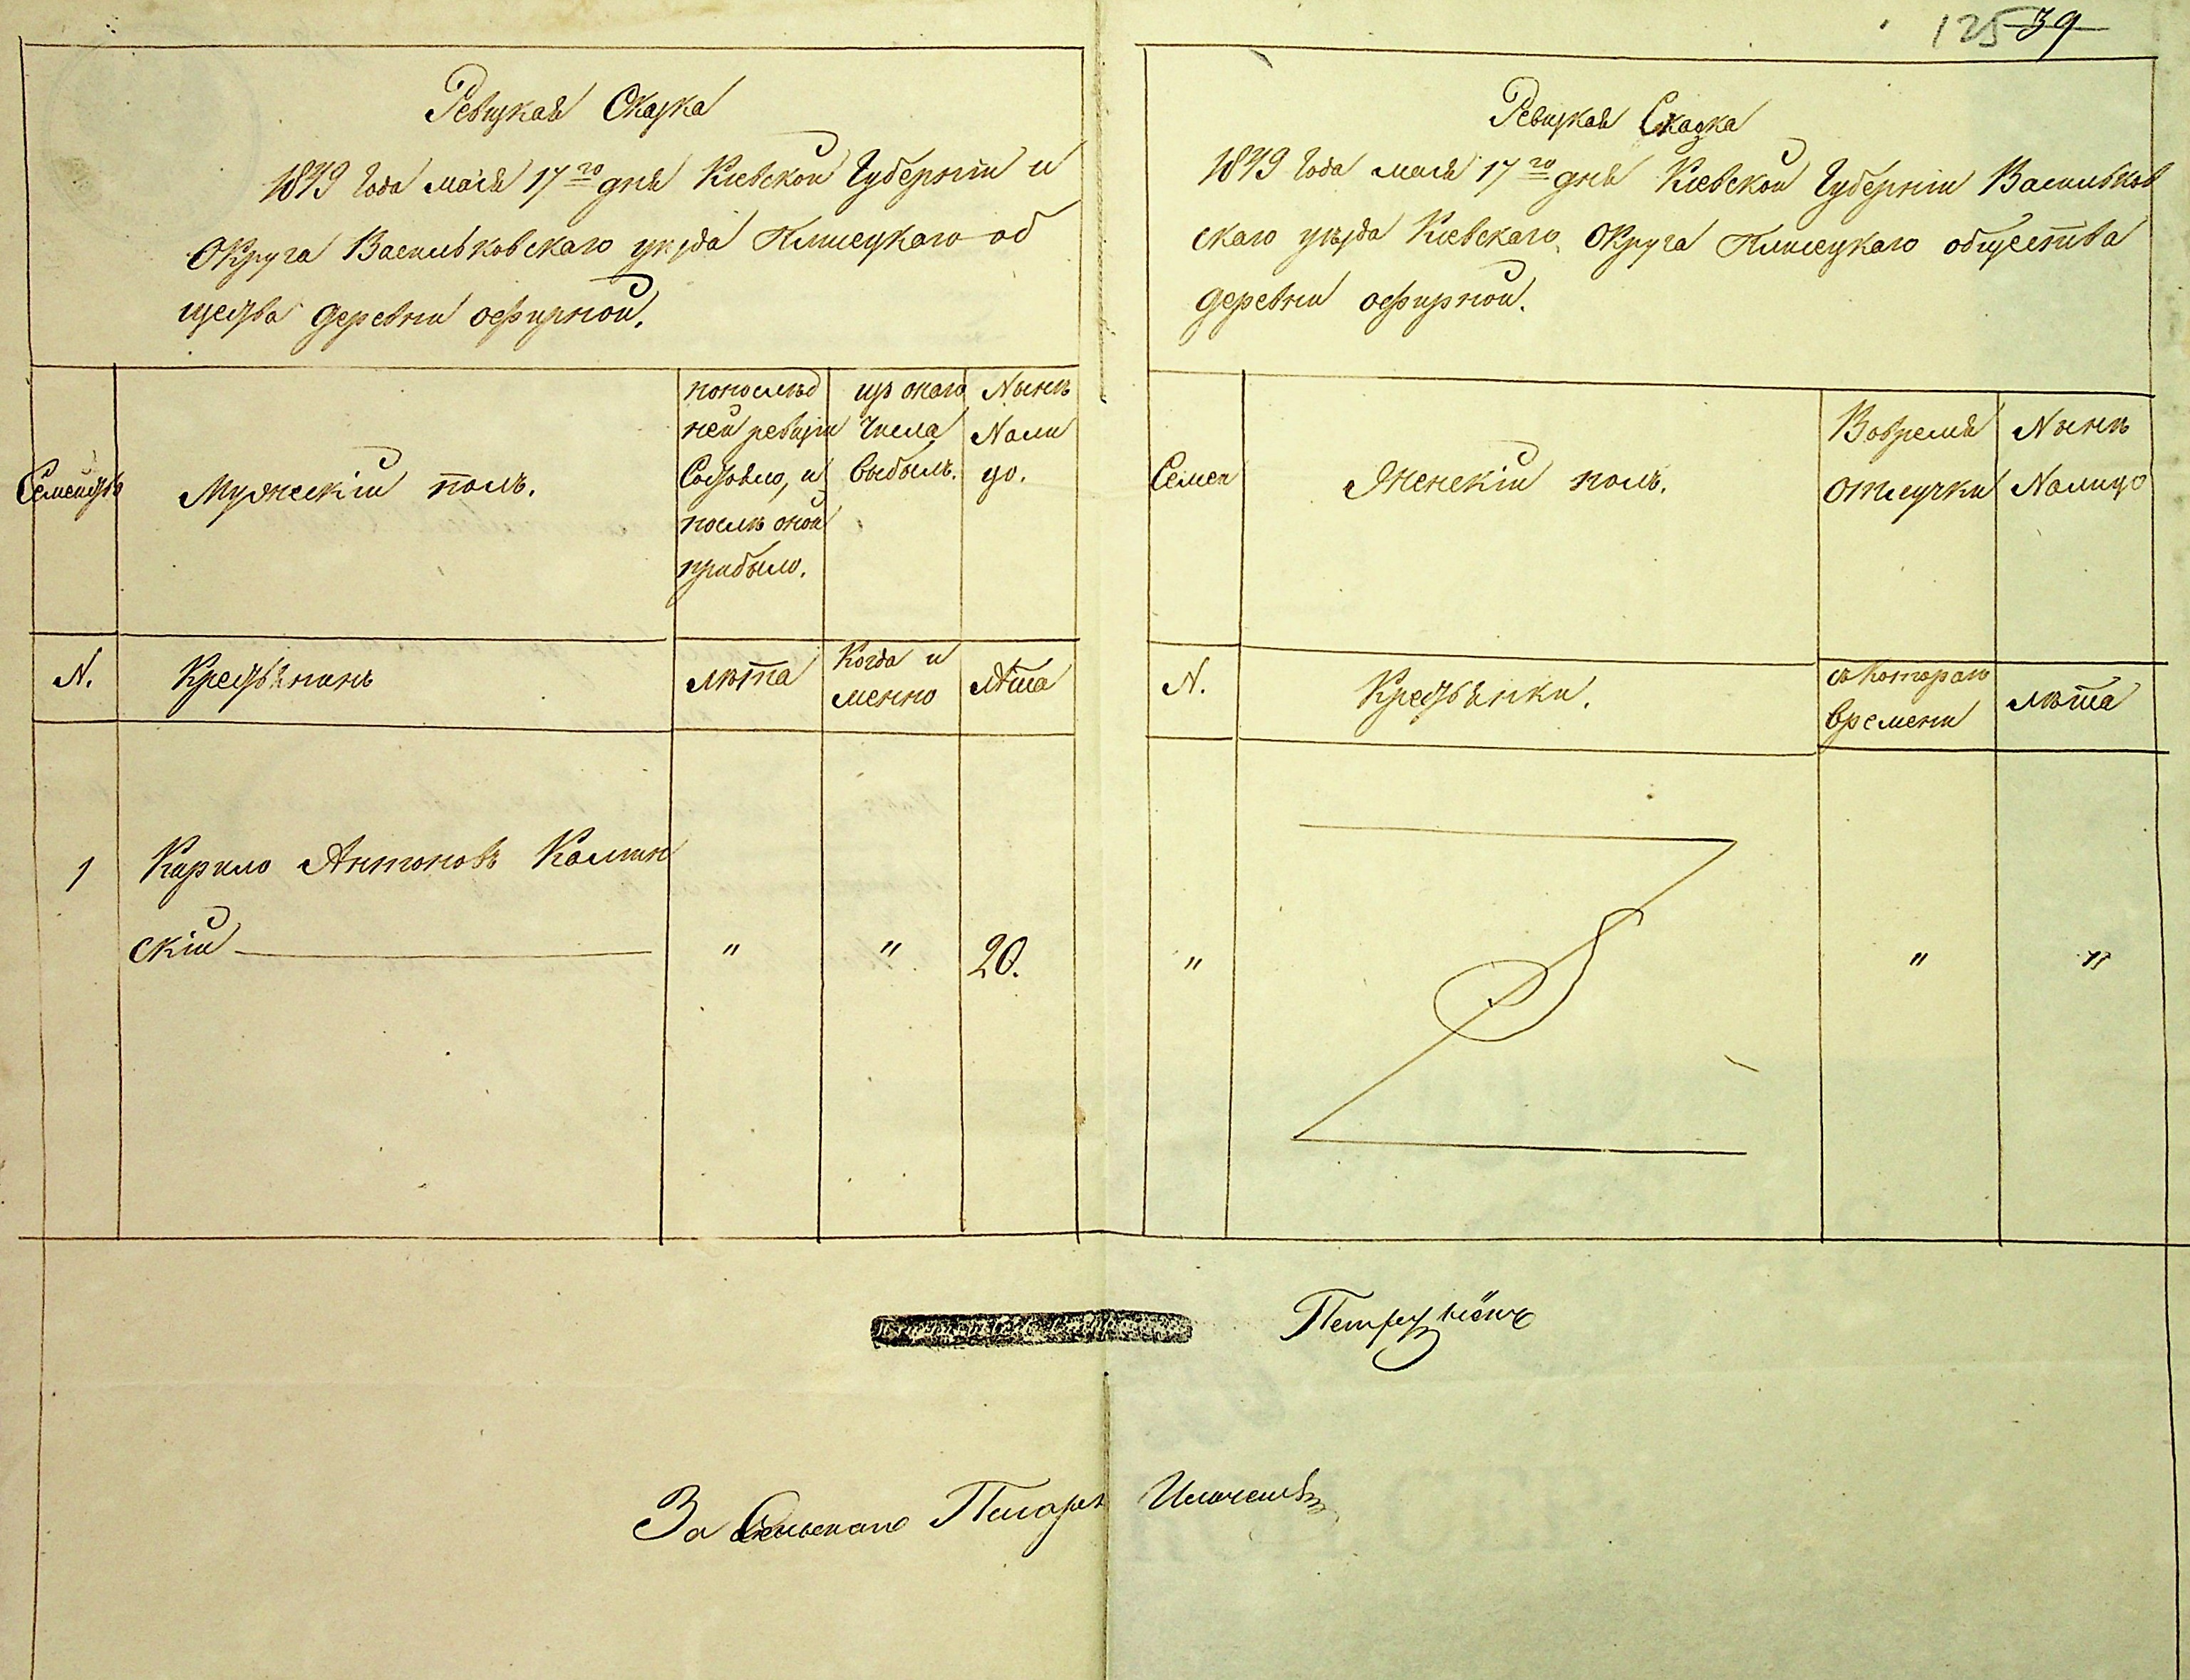 125 39
Ревизкая Сказка
1849 Года мая 17го дня Кіевской Губерніи и
Округа Васильковскаго уезда об
щества деревни офирной.
Семейства
Мужескій полъ.
попослѣд
ней ревизіи
Состояло, и
послѣ оной
прибыло.
изъ онаго
Числа
выбылъ.
Нынѣ
Нали
цо.
N.
Крестьянинъ
лѣта
Когда и
менно
лѣта
1
Карило Антоновъ Калин
скій
"
"
20.
Ревизкая Сказка
1849 Года мая 17го дня Кіевской Губерніи Васильков
скаго уѣзда Кіевскаго Округа общества
деревни офирной.
Семей
Женскій полъ.
Вовремя
отлучки
Нынѣ
Налицо
N.
Крестьянки.
съ котораго
времени
лѣта
"
"
"
За Сельскаго Писаря